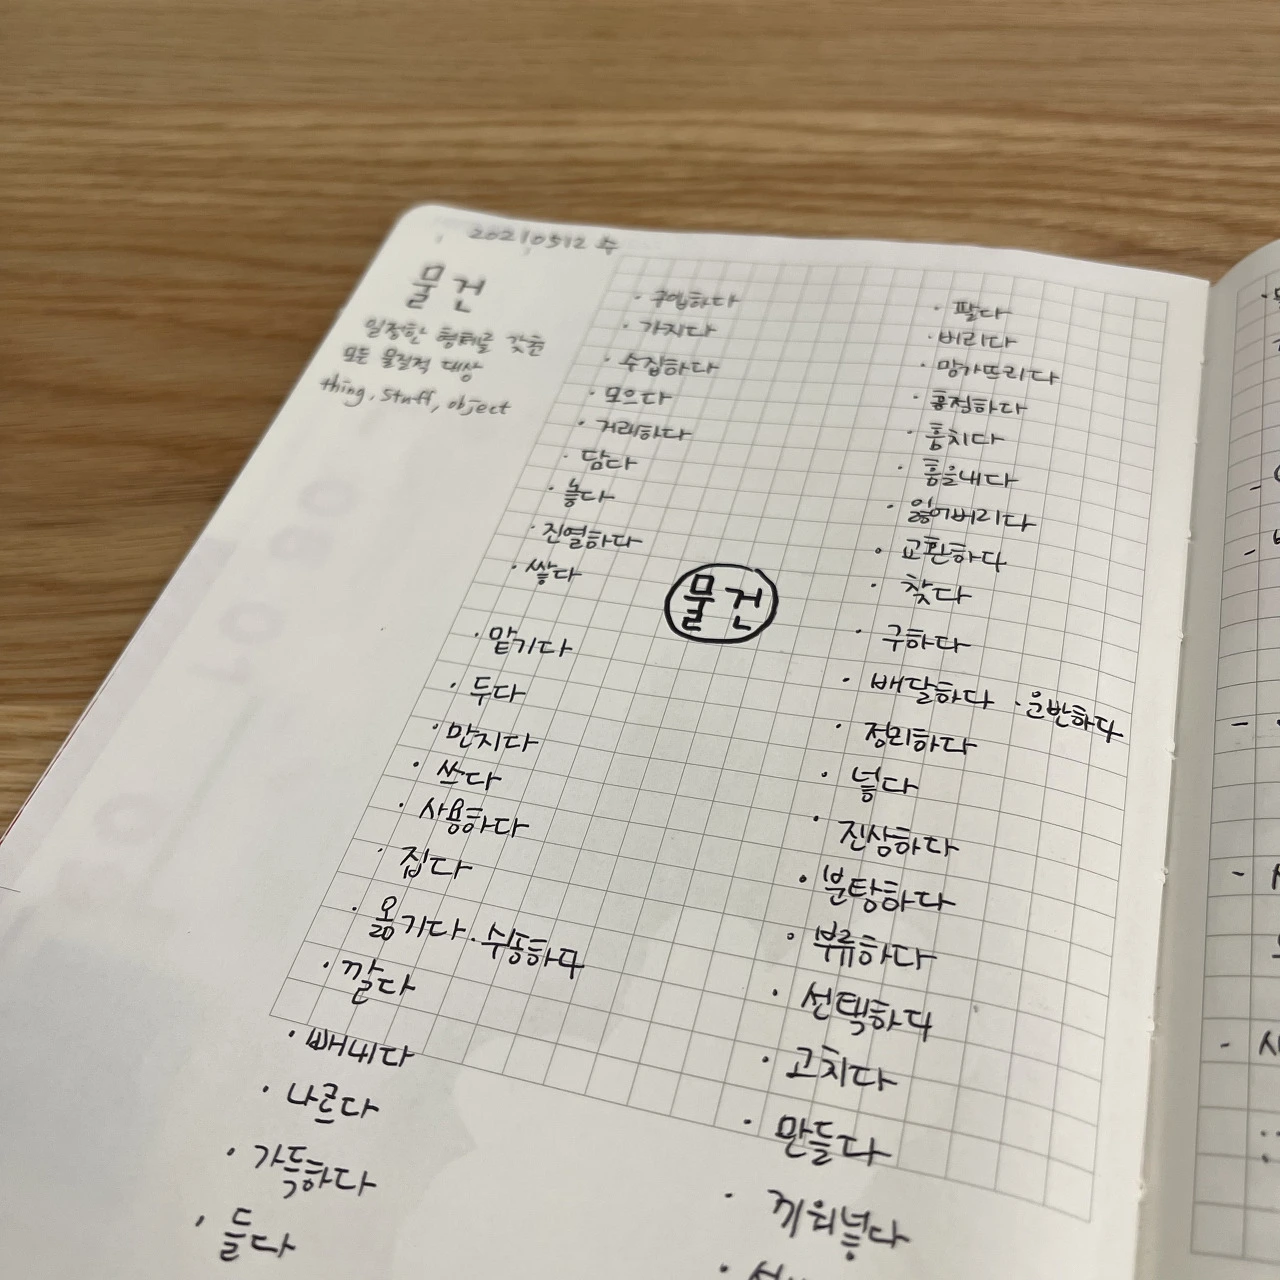 20210512 수
물건
일정한 형체를 갖춘
모든 물질적 대상
thing, stuff, object
· 구입하다
· 가지다
· 수집하다
· 모으다
· 거래하다
· 담다
· 놓다
· 진열하다
· 쌓다
· 맡기다
· 두다
· 만지다
· 쓰다
· 사용하다
· 집다
· 옮기다 · 수송하다
· 깔다
· 빼내다
· 나르다
· 가득하다
· 들다
물건
· 팔다
· 버리다
· 망가뜨리다
· 흥정하다
· 훔치다
· 흠을내다
· 잃어버리다
· 교환하다
· 찾다
· 구하다
· 배달하다 · 운반하다
· 정리하다
· 넣다
· 진상하다
· 분탕하다
· 분류하다
· 선택하다
· 고치다
· 만들다
· 끼워넣다